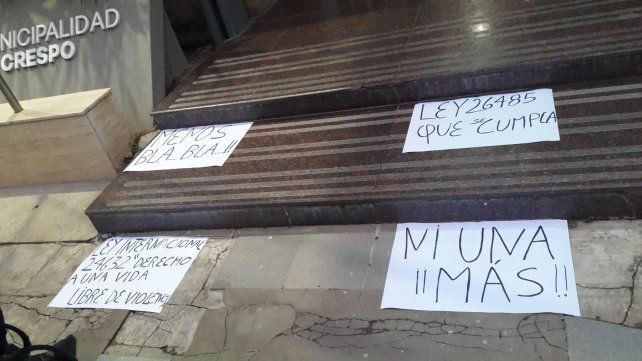 NICIPALIDAD
CRESPO
MENOS
BLA..BLA...!!
LEY 26485
QUE SE CUMPLA
EY INTERNACIONAL
24632 "DERECHO
A UNA VIDA
LIBRE DE VIOLENC
NI UNA
¡¡MÁS!!